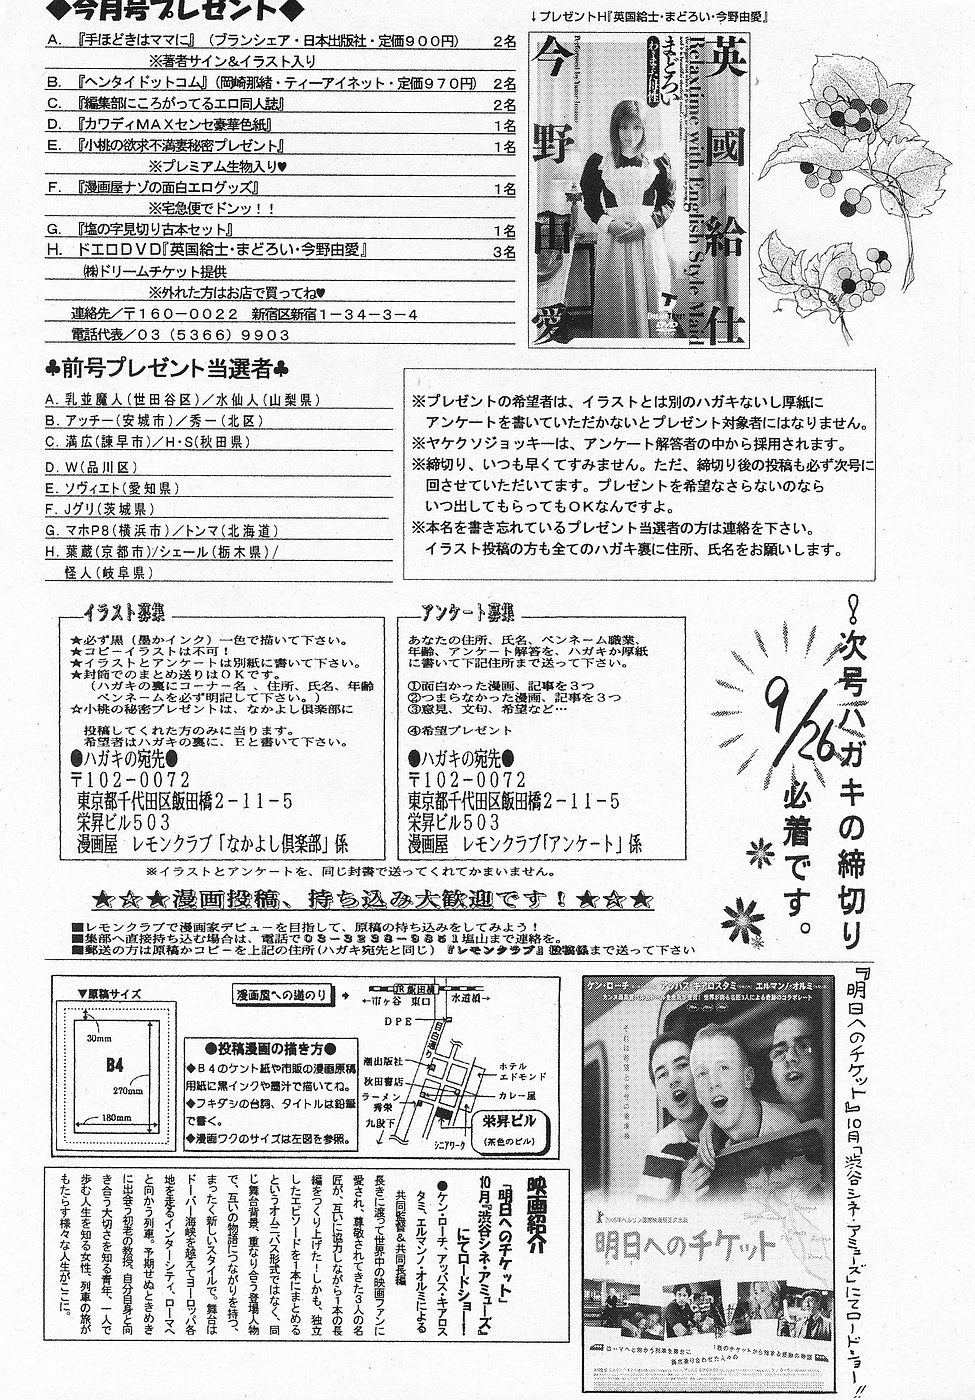 ◆今月号プレゼント◆
A. 『手ほどきはママに』（ブランシェア・日本出版社・定価９００円） ２名
※著者サイン＆イラスト入り
B. 『ヘンタイドットコム』（岡崎那緒・ティーアイネット・定価９７０円） ２名
C. 『編集部にころがってるエロ同人誌』 ２名
D. 『カワディＭＡＸセンセ豪華色紙』 １名
E. 『小桃の欲求不満妻秘密プレゼント』 １名
※プレミアム生物入り♥
F. 『漫画屋ナゾの面白エログッズ』 １名
※宅急便でドンッ！！
G. 『塩の字見切り古本セット』 １名
H. ドエロＤＶＤ『英国給士・まどろい・今野由愛』 ３名
㈱ドリームチケット提供
※外れた方はお店で買ってね♥
連絡先／〒１６０－００２２ 新宿区新宿１－３４－３－４
電話代表／０３（５３６６）９９０３
↓プレゼントＨ『英国給士・まどろい・今野由愛』
英國給仕
Relaxtime with English Style Maid
まどろい
今野由愛
♣前号プレゼント当選者♣
A. 乳並魔人（世田谷区）／水仙人（山梨県）
B. アッチー（安城市）／秀一（北区）
C. 満広（諫早市）／Ｈ・Ｓ（秋田県）
D. W（品川区）
E. ソヴィエト（愛知県）
F. Jグリ（茨城県）
G. マホP8（横浜市）／トンマ（北海道）
H. 葉蔵（京都市）/シェール（栃木県）/
怪人（岐阜県）
※プレゼントの希望者は、イラストとは別のハガキないし厚紙に
アンケートを書いていただかないとプレゼント対象者にはなりません。
※ヤケクソジョッキーは、アンケート解答者の中から採用されます。
※締切り、いつも早くてすみません。ただ、締切り後の投稿も必ず次号に
回させていただいてます。プレゼントを希望なさらないのなら
いつ出してもらってもＯＫなんですよ。
※本名を書き忘れているプレゼント当選者の方は連絡を下さい。
イラスト投稿の方も全てのハガキ裏に住所、氏名をお願いします。
イラスト募集
★必ず黒（墨かインク）一色で描いて下さい。
★コピーイラストは不可！
★イラストとアンケートは別紙に書いて下さい。
★封筒でのまとめ送りはＯＫです。
（ハガキの裏にコーナー名、住所、氏名、年齢
ペンネームを必ず明記して下さい。）
☆小桃の秘密プレゼントは、なかよし倶楽部に
投稿してくれた方のみに当ります。
希望者はハガキの裏に、Ｅと書いて下さい。
●ハガキの宛先●
〒１０２－００７２
東京都千代田区飯田橋２－１１－５
栄昇ビル５０３
漫画屋 レモンクラブ「なかよし倶楽部」係
アンケート募集
あなたの住所、氏名、ペンネーム職業、
年齢、アンケート解答を、ハガキか厚紙
に書いて下記住所まで送って下さい。
①面白かった漫画、記事を３つ
②つまらなかった漫画、記事を３つ
③意見、文句、希望など…
④希望プレゼント
●ハガキの宛先●
〒１０２－００７２
東京都千代田区飯田橋２－１１－５
栄昇ビル５０３
漫画屋 レモンクラブ「アンケート」係
！次号ハガキの締切り
9/26
必着です。
※イラストとアンケートを、同じ封書で送ってくれてかまいません。
★☆★漫画投稿、持ち込み大歓迎です！★☆★
■レモンクラブで漫画家デビューを目指して、原稿の持ち込みをしてみよう！
■集部へ直接持ち込む場合は、電話で０３－３２３８－９８５１塩山まで連絡を。
■郵送の方は原稿かコピーを上記の住所（ハガキ宛先と同じ）『レモンクラブ』投稿係まで送って下さい
▼原稿サイズ
30mm
B4
270mm
180mm
漫画屋への道のり
●投稿漫画の描き方●
◆Ｂ４のケント紙や市販の漫画原稿
用紙に黒インクや墨汁で描いてね。
◆フキダシの台詞、タイトルは鉛筆
で書く。
◆漫画ワクのサイズは左図を参照。
JR飯田橋
←市ヶ谷 東口 水道橋→
ＤＰＥ
目白通り
潮出版社
秋田書店
ラーメン
秀栄
九段下
ホテル
エドモンド
カレー屋
シニアワーク
栄昇ビル
（茶色のビル）
映画紹介
「明日へのチケット」
１０月『渋谷シネ・アミューズ』
にてロードショー！
●ケン・ローチ、アッバス・キアロス
タミ、エルマンノ・オルミによる
共同監督＆共同長編
長きに渡って世界中の映画ファンに
愛され、尊敬されてきた３人の名
匠が、互いに協力しながら１本の長
編をつくり上げた！しかも、独立
したエピソードを１本にまとめる
というオムニバス形式ではなく、同
じ舞台背景、重なり合う登場人物
で、互いの物語につながりを持つ、
まったく新しいスタイルで。舞台は
ドーバー海峡を越えてヨーロッパ各
地を走るインターシティ、ローマへ
と向かう列車。予期せぬときめき
に出会う初老の教授、自分自身と向
き合う大切さを知る青年、一人で
歩む人生を知る女性、列車の旅が
もたらす様々な人生がここに。
ケン・ローチ アッバス・キアロスタミ エルマンノ・オルミ
明日へのチケット
『明日へのチケット』10月「渋谷シネ・アミューズ」にてロードショー!!